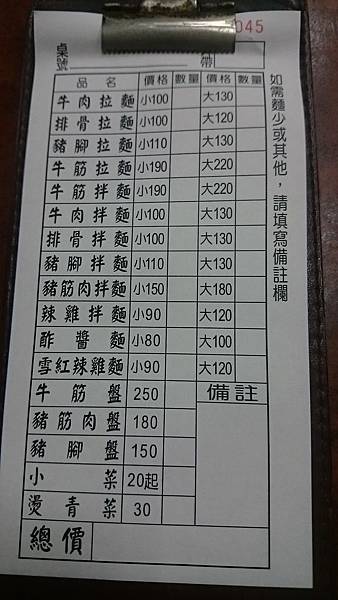 045
桌號 帶
品名 價格 數量 價格 數量
牛肉拉麵 小100 大130
排骨拉麵 小100 大120
豬腳拉麵 小110 大130
牛筋拉麵 小190 大220
牛筋拌麵 小190 大220
牛肉拌麵 小100 大130
排骨拌麵 小100 大130
豬腳拌麵 小110 大130
豬筋肉拌麵 小150 大180
辣雞拌麵 小90 大120
酢醬麵 小80 大100
雪紅辣雞麵 小90 大120
牛筋盤 250 備註
豬筋肉盤 180
豬腳盤 150
小菜 20起
燙青菜 30
總價
如需麵少或其他，請填寫備註欄